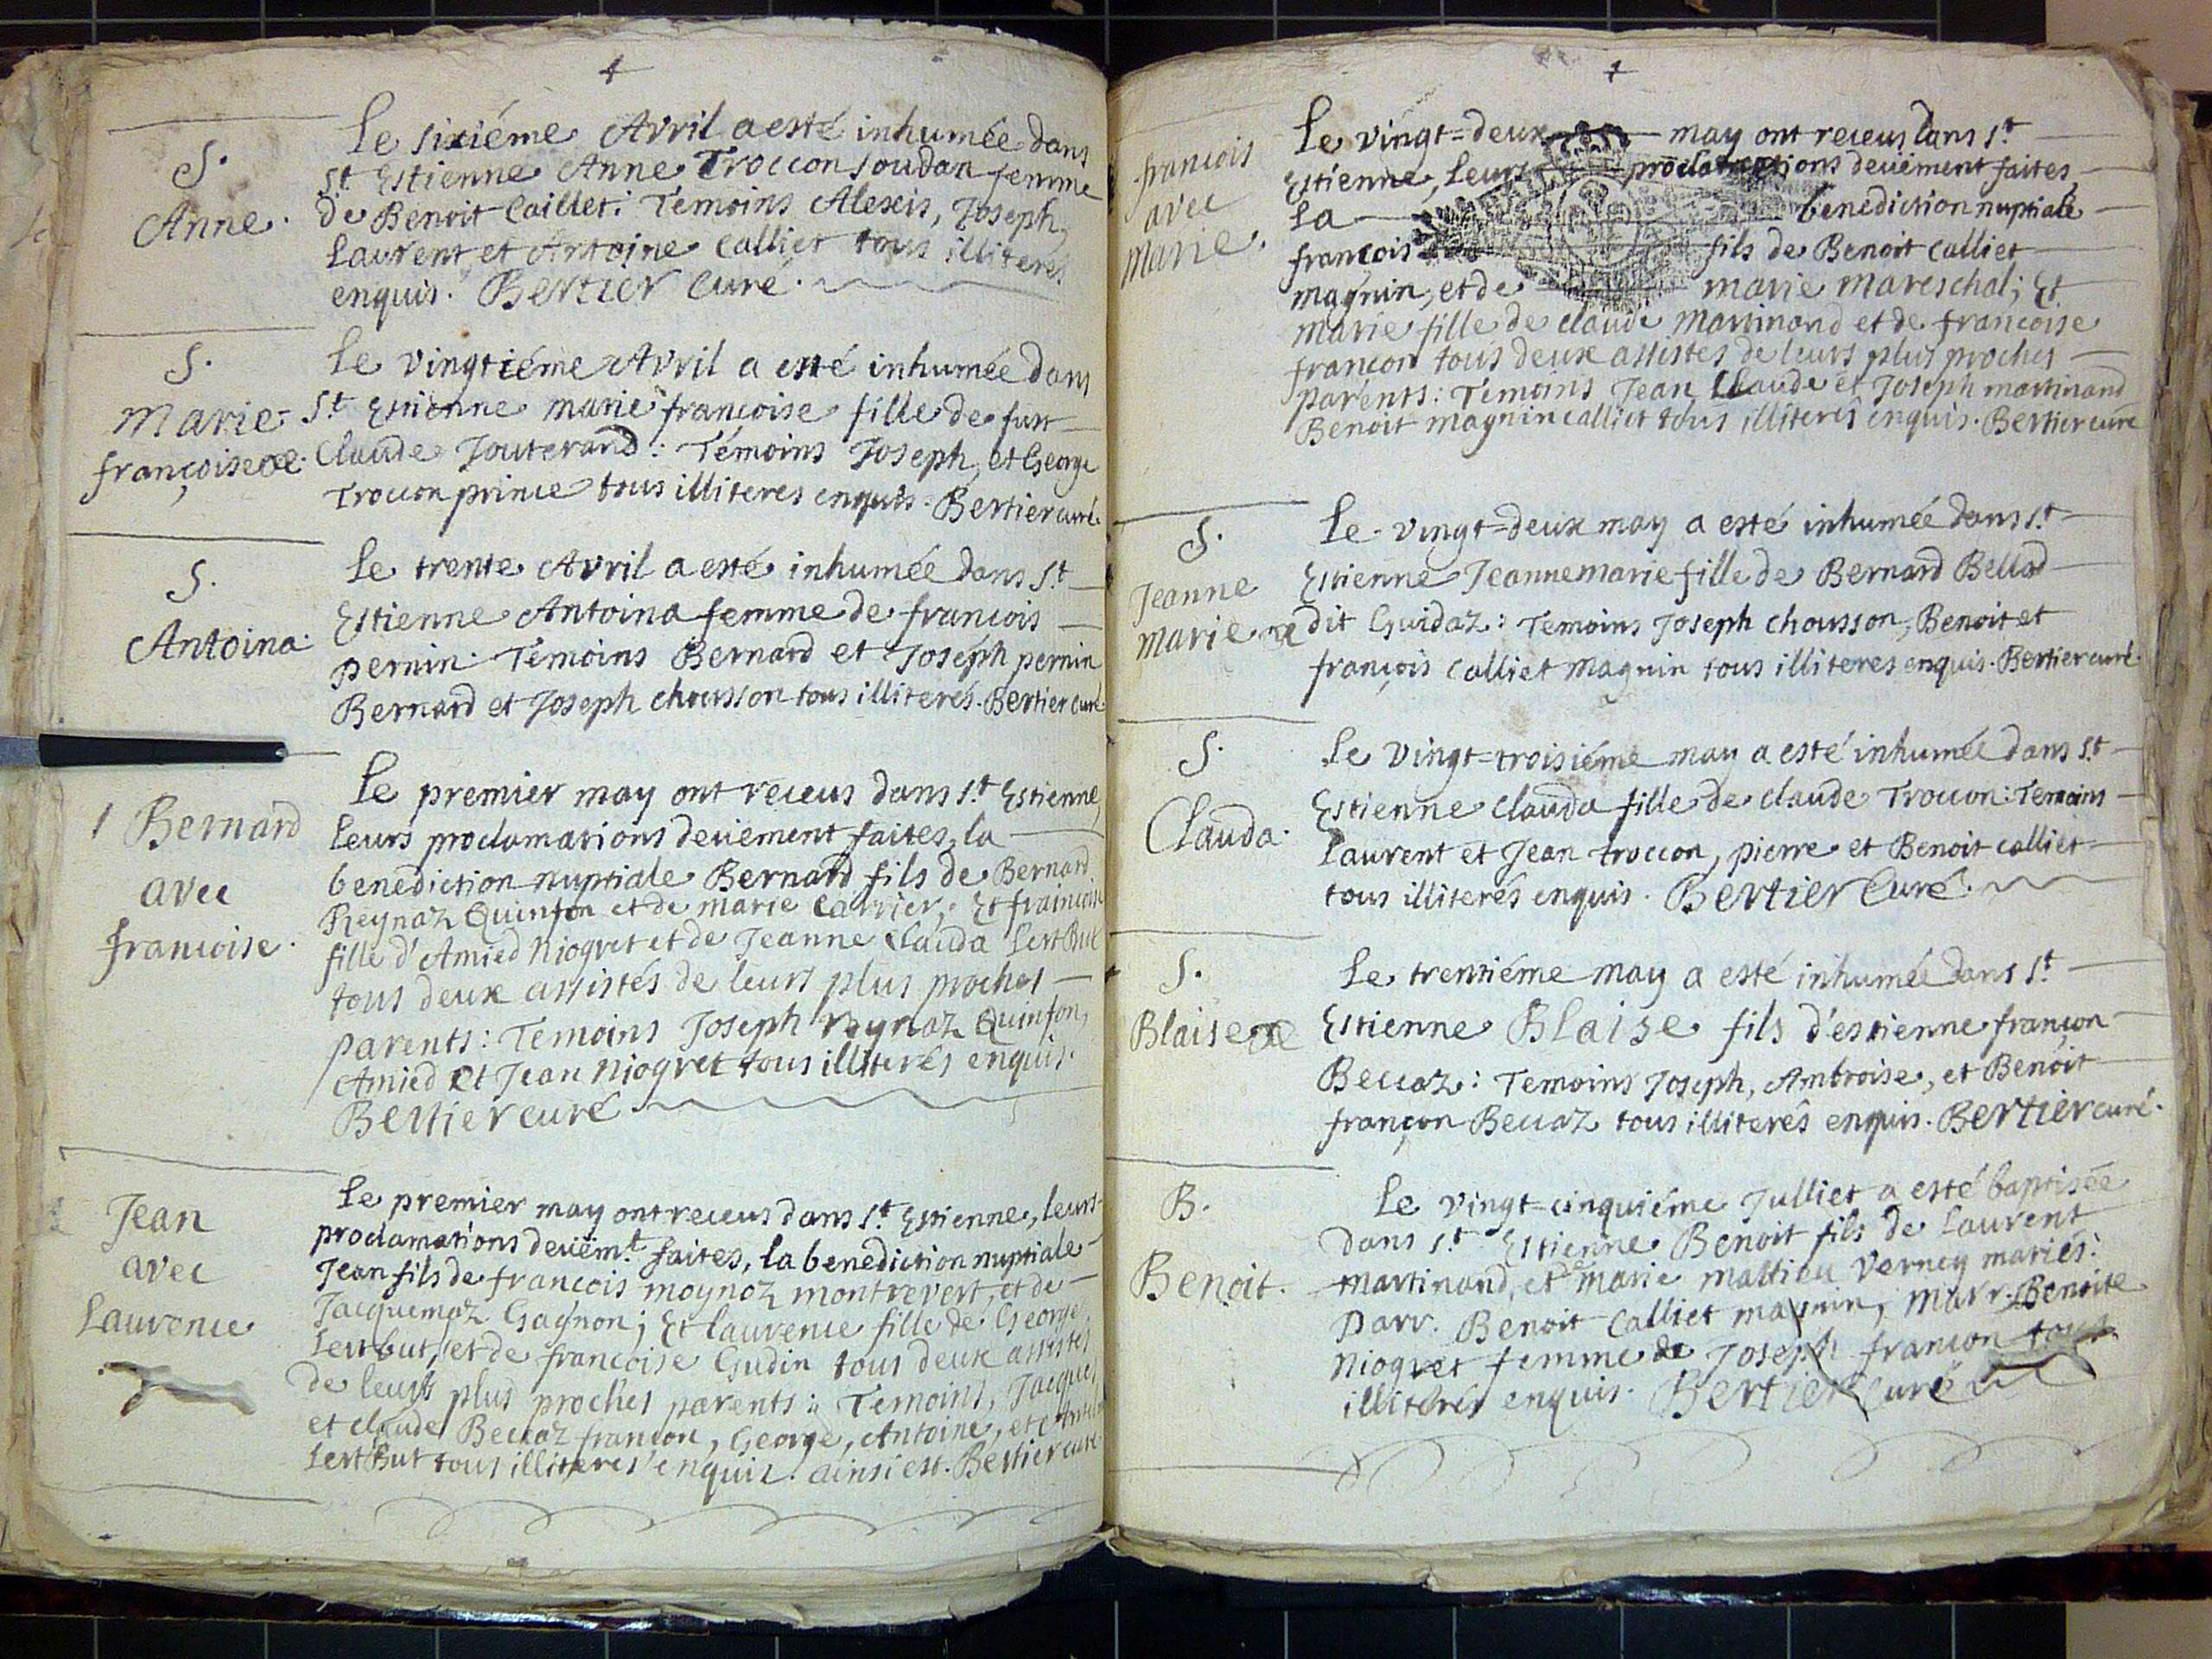 S.
Anne.
Le sixiéme Avril a esté inhumée dans
St Estienne Anne Troccon soudan femme
de Benoit Calliet: Temoins Alexis, Joseph,
Laurent et Antoine Calliet tous illiterés
enquis. Bertier Curé.
S.
Marie-
françoise
Le vingtiéme Avril a esté inhumée dans
St Estienne marie françoise fille de fust
Claude Jouterand: Témoins Joseph, et George
Troccon prince tous illiteres enquis. Bertier curé.
S.
Antoina.
Le trente Avril a esté inhumée dans St
Estienne Antoina femme de francois
pernin. Témoins Bernard et Joseph pernin
Bernard et Joseph chousson tous illiterés. Bertier Curé
Bernard
avec
francoise.
Le premier may ont receus dans St Estienne,
leurs proclamations deüement faites, la
benediction nuptiale Bernard fils de Bernard
Reynaz Quinson et de marie Carrier; Et
fille d'Amied Niogret et de Jeanne Clauda LertBut
tous deux assistés de leurs plus proches
parents: Temoins Joseph Reynaz Quinson,
Amied et Jean Niogret tous illiterés enquis.
Bertier curé
Jean
avec
Laurence
Le premier may ont receus dans St Estienne, leurs
proclamations deüemt faites, la benediction nuptiale
Jean fils de francois moynoz montrevert, et de
Jacquemaz Gagnon; Et laurence fille de George
Lertbut, et de francoise Gudin tous deux assistés
de leurs plus proches parents: Temoins, Jacques
et claude Beccaz francon, George, Antoine, et
LertBut tous illiteres enquis. ainsi est. Bertier curé
francois
avec
Marie.
Le vingt=deux may ont receus dans St
Estienne, leurs proclamations deüement faites
la benediction nuptiale
francois fils de Benoit calliet
magnin, et de marie mareschal; Et
marie fille de claude Martinand et de francoise
francon tous deux assistes de leurs plus proches
parents: Temoins Jean Claude et Joseph martinand
Benoit magnin calliet tous illiterés enquis. Bertier curé
S.
Jeanne
Marie
Le vingt=deux may a esté inhumée dans St
Estienne Jeannemarie fille de Bernard Bellod
dit Guidaz: Temoins Joseph chousson, Benoit et
françois Calliet magnin tous illiteres enquis. Bertier curé.
S.
Clauda.
Le vingt=troisiéme may a esté inhumée dans St
Estienne Clauda fille de claude Troccon: Temoins
Laurent et Jean troccon, pierre et Benoit calliet
tous illiterés enquis. Bertier Curé.
S.
Blaise
Le trentiéme may a esté inhumée dans St
Estienne Blaise fils d'estienne françon
Beccaz: Temoins Joseph, Ambroise, et Benoit
françon Beccaz tous illiterês enquis. Bertier curé.
B.
Benoit.
Le vingt-cinquiéme Julliet a esté baptisée
dans St Estienne Benoit fils de Laurent
martinand, et de Marie mattieu verney mariés:
Parr. Benoit Calliet magnin, Marr. Benoite
Niogret femme de Joseph francon tous
illiterés enquis. Bertier Curé